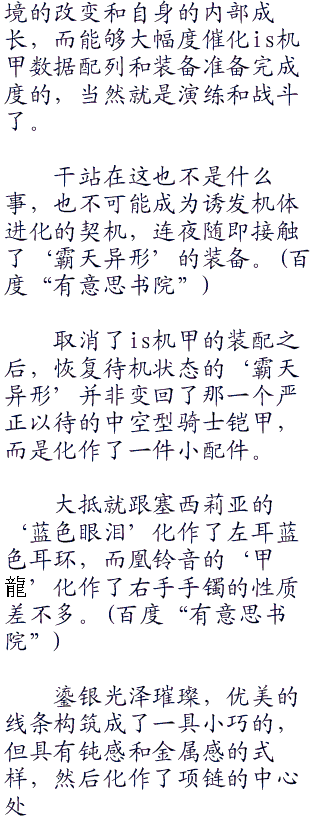 境的改变和自身的内部成
长，而能够大幅度催化is机
甲数据配列和装备准备完成
度的，当然就是演练和战斗
了。
干站在这也不是什么
事，也不可能成为诱发机体
进化的契机，连夜随即接触
了‘霸天异形’的装备。(百
度“有意思书院”)
取消了is机甲的装配之
后，恢复待机状态的‘霸天
异形’并非变回了那一个严
正以待的中空型骑士铠甲，
而是化作了一件小配件。
大抵就跟塞西莉亚的
‘蓝色眼泪’化作了左耳蓝
色耳环，而凰铃音的‘甲
龍’化作了右手手镯的性质
差不多。(百度“有意思书
院”)
鎏银光泽璀璨，优美的
线条构筑成了一具小巧的，
但具有钝感和金属感的式
样，然后化作了项链的中心
处